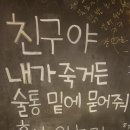 친구야
내가 죽거든
술통 밑에 묻어줘